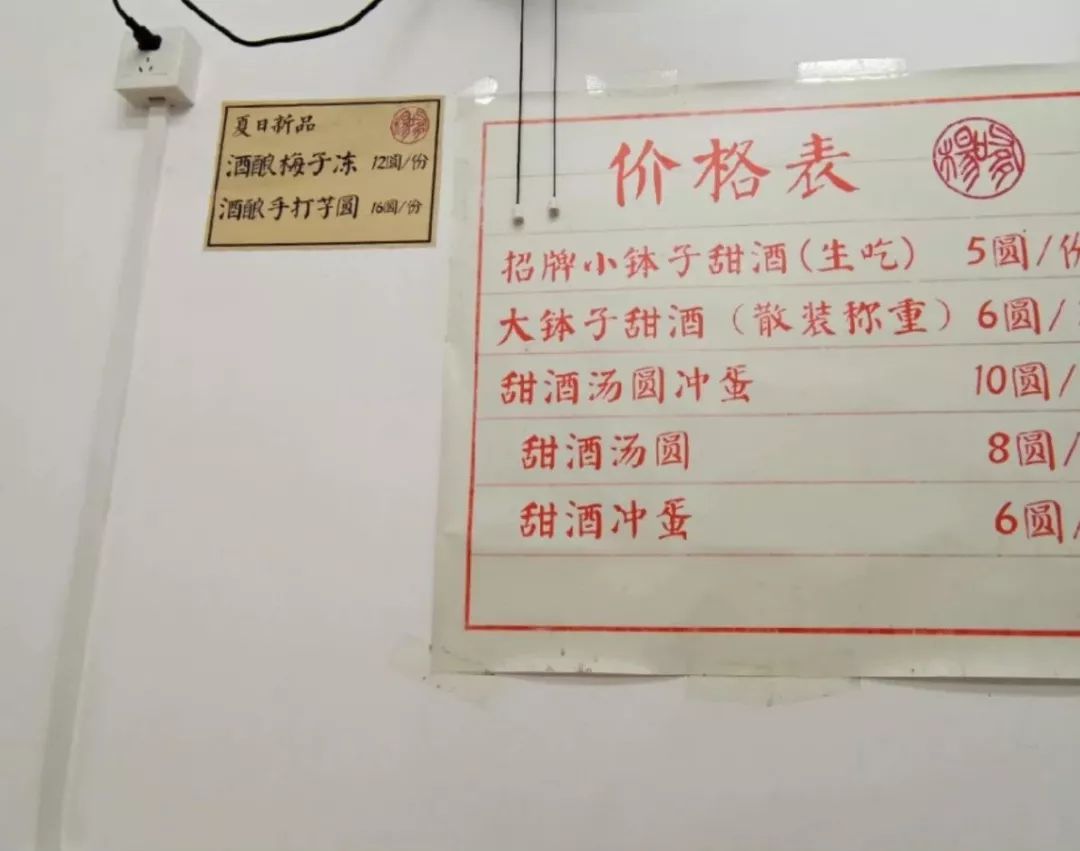 夏日新品
酒酿梅子冻 12圆/份
酒酿手打芋圆 16圆/份
价格表
招牌小钵子甜酒(生吃) 5圆/份
大钵子甜酒（散装称重）6圆/
甜酒汤圆冲蛋 10圆/
甜酒汤圆 8圆/
甜酒冲蛋 6圆/